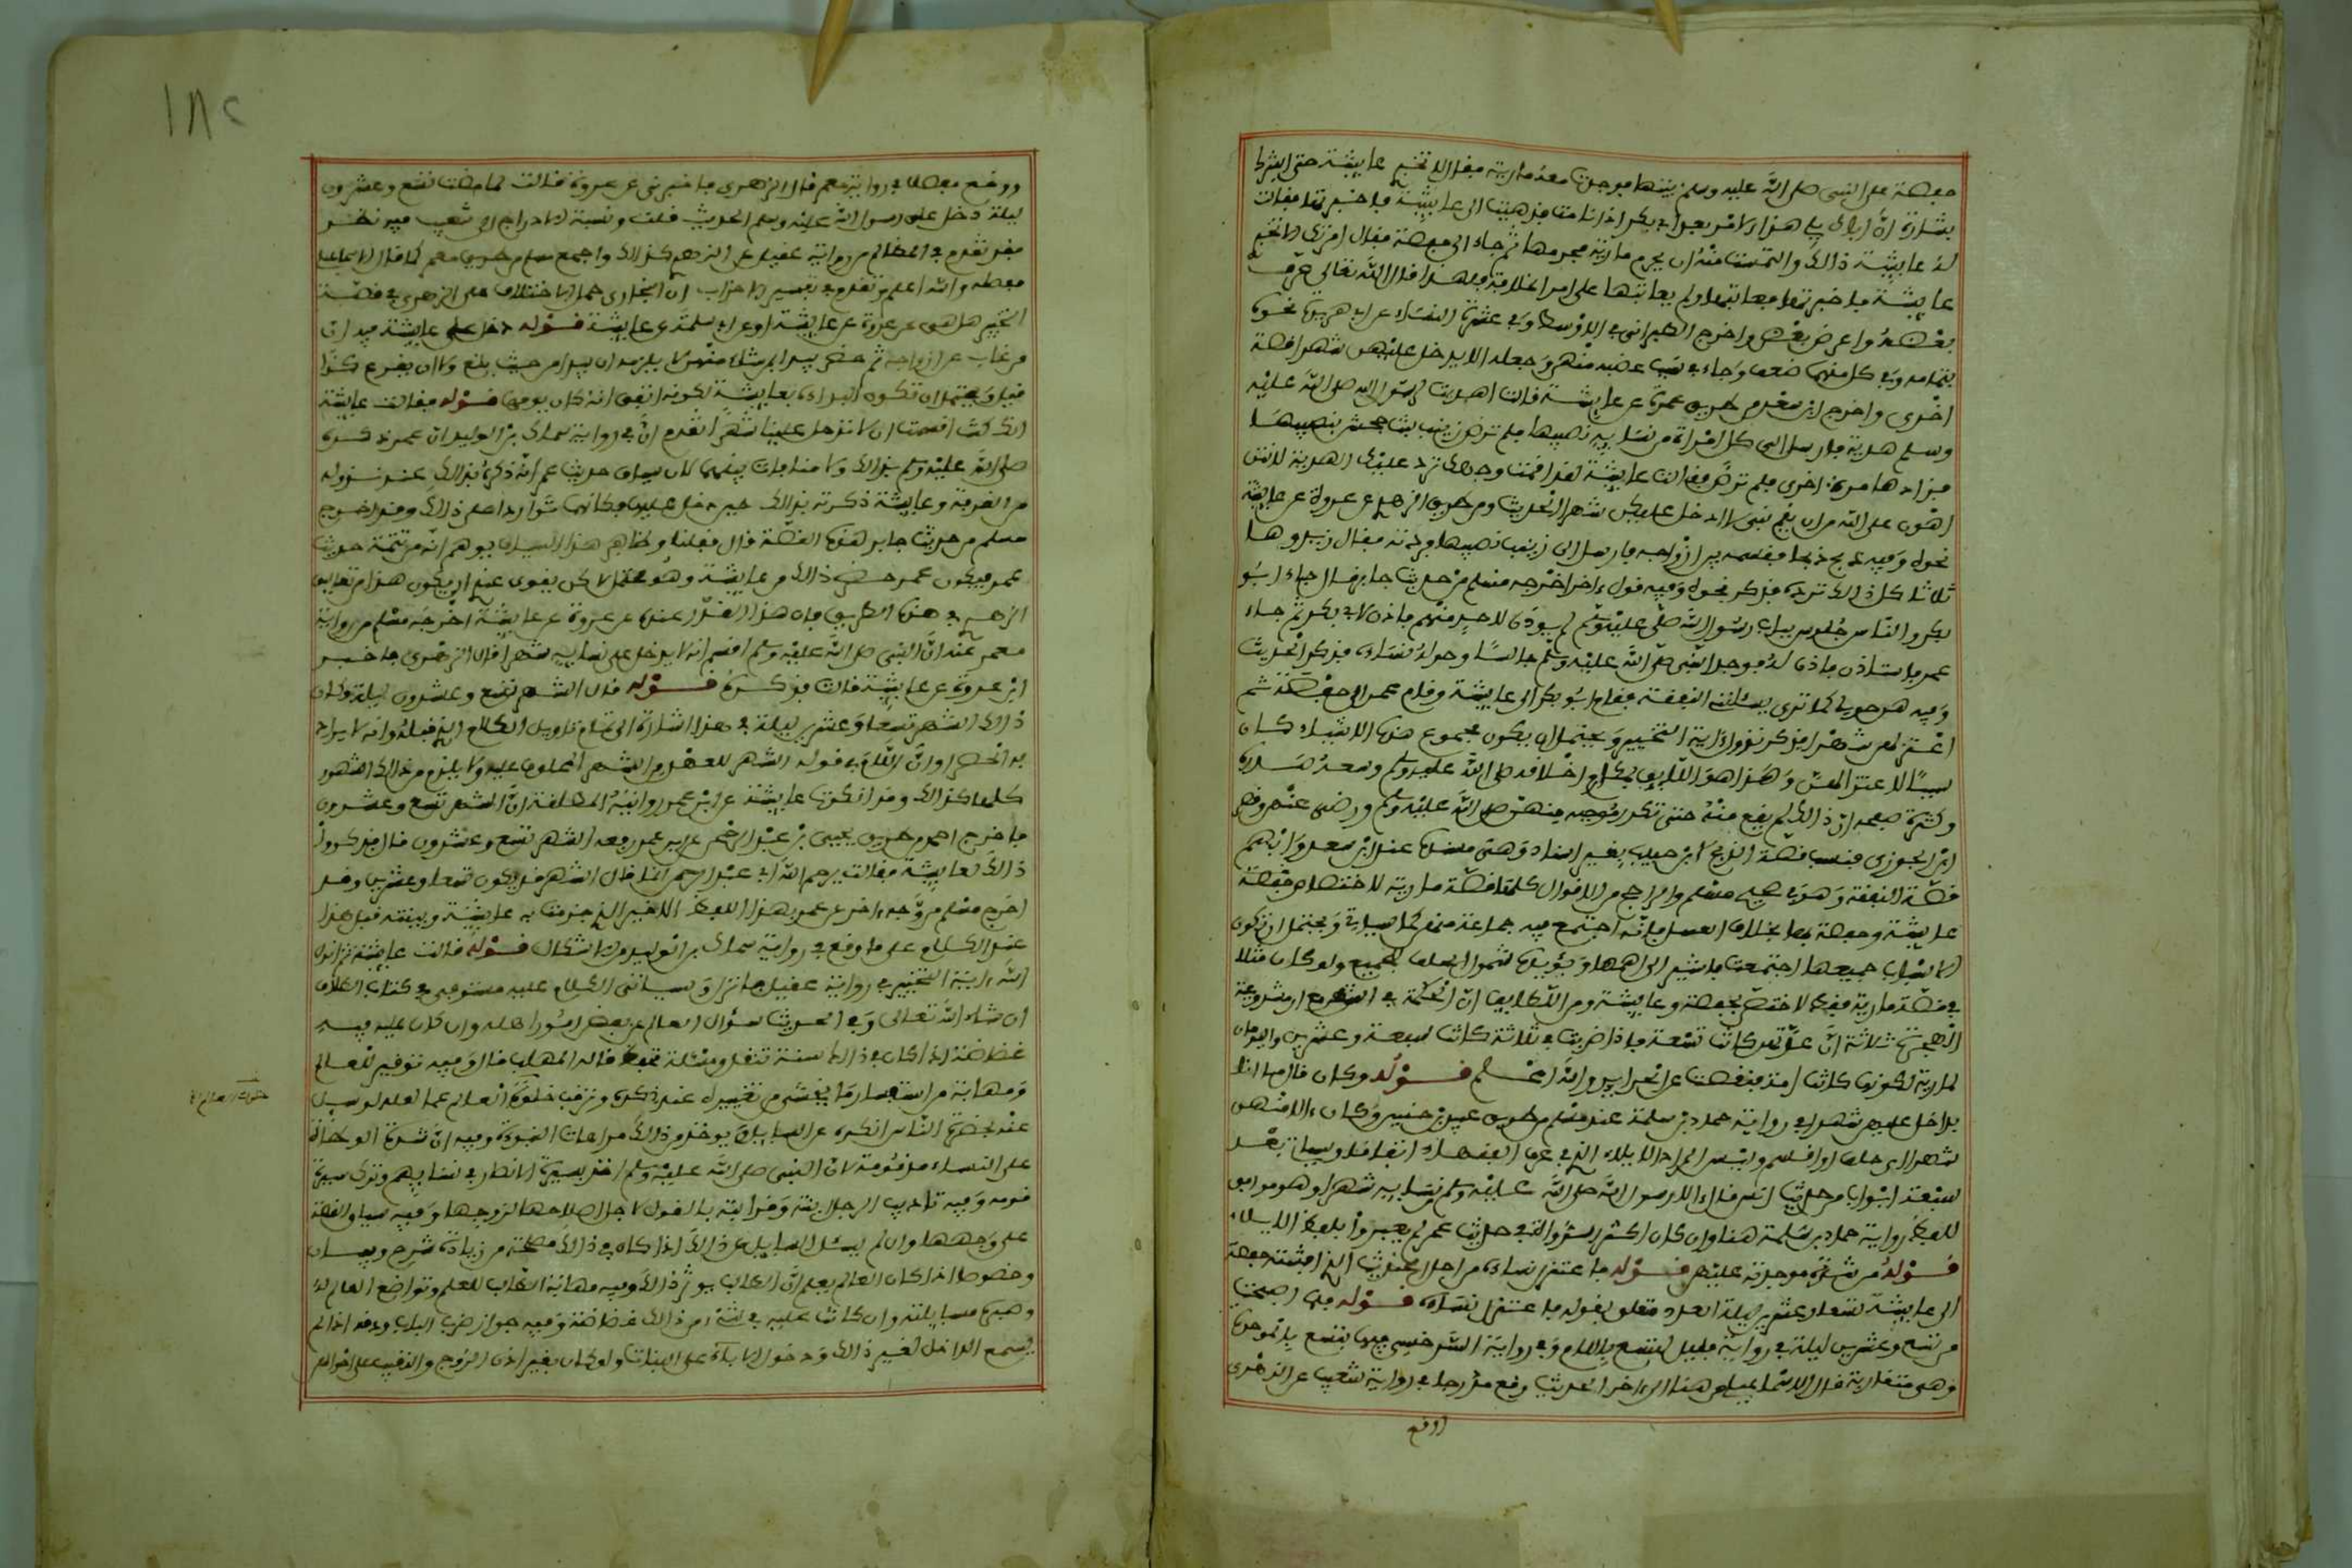 حفصة على النبي صلى الله عليه وسلم بيتها فوجدت معه مارية فقال لا تخبري عايشة حتى ابشرك
بشارة ان اباك يلي هذا الامر بعد ابي بكر اذا انا مت فذهبت الى عايشة فاخبرتها فقالت
له عايشة ذالك والتمست منه ان يحرم مارية فحرمها ثم جاء الى حفصة فقال امرتك الا تخبري
عايشة فاخبرتها فعاتبها ولم يعاتبها على امر الخلافة فلهذا قال الله تعالى عرف
بعضه واعرض عن بعض واخرج الطبراني في الاوسط وفي عشرة النساء عن ابي هريرة نحوه
بتمامه وفي كل منهما ضعف وجاء في سبب غضبه منهن وجعله الا يدخل عليهن شهرا قصة
اخرى واخرج ابن سعد من طريق عمرة عن عايشة قالت اهديت لرسول الله صلى الله عليه
وسلم هدية فارسل الى كل امراة من نسايه نصيبها فلم ترض زينب بنت جحش بنصيبها
فزادها مرة اخرى فلم ترض فقالت عايشة لقد اقمت وجهك ترد عليك الهدية لانتن
اهون على الله من ان يغمنني لا ادخل عليكن شهرا الحديث ومن طريق الزهري عن عروة عن عايشة
نحوه وفيه ذبح ذبحا فقسمه بين ازواجه فارسل الى زينب نصيبها فردته فقال زيدوها
ثلاثا كل ذالك ترده فذكر نحوه وفيه قول ءاخر اخرجه مسلم من حديث جابر قال جاء ابو
بكر والناس جلوس بباب رسول الله صلى الله عليه وسلم لم يوذن لاحد منهم فاذن لابي بكر ثم جاء
عمر فاستاذن فاذن له فوجد النبي صلى الله عليه وسلم جالسا وحوله نساءه فذكر الحديث
وفيه هن حولي كما ترى يسئلنني النفقة فقام ابو بكر الى عايشة وقام عمر الى حفصة ثم
اعتزلهن شهرا فذكر نزول ءاية التخيير ويحتمل ان يكون مجموع هذه الاشياء كان
سببا لاعتزالهن وهذا هو اللايق بمكارم اخلاقه صلى الله عليه وسلم وسعة صدره
وكثرة صفحه ان ذالك لم يقع منه حتى تكرر موجبه منهن صلى الله عليه وسلم ورضي عنهن وقصر
ابن الجوزي فنسب قصة الذبح لابن حبيب بغير اسناد وهي مسندة عند ابن سعد وابهم
قصة النفقة وهي في صحيح مسلم والراجح من الاقوال كلها قصة مارية لاختصاص حفصة
عايشة وحفصة بها بخلاف العسل فانه اجتمع فيه جماعة منهن كما سياتي ويحتمل ان تكون
الاسباب جميعها اجتمعت فاشير الى اهمها ويؤيده شمول الحلف للجميع ولو كان مثلا
في قصة مارية فقط لاختص بحفصة وعايشة ومن اللطايف ان الحكمة في الشهر مع ان مشروعية
الهجرة ثلاثة ان عدتهن كانت تسعة فاذا ضربت في ثلاثة كانت سبعة وعشرين واليومان
لمارية لكونها كانت امة فنقصت عن الحراير والله اعلم قوله وكان قال ما انا
بداخل عليهن شهرا في رواية حماد بن سلمة عند مسلم من طريق عبيد بن حنين وكان ءالا منهن
شهرا اي حلف او اقسم وليس المراد الايلاء الذي في عرف الفقهاء اتفاقا وسياتي بعد
سبعة ابواب من حديث انس قال ءالا رسول الله صلى الله عليه وسلم من نسايه شهرا وهو موافق
للفظ رواية حماد بن سلمة هنا وان كان اكثر الرواة في حديث عمر لم يعبروا بلفظ الايلاء
قوله من شدة موجدته عليهن قوله فاعتزل نساءه من اجل الحديث الذي افشته حفصة
الى عايشة تسعا وعشرين ليلة العدد متعلق بقوله فاعتزل نساءه قوله فلما اصبحت
من تسع وعشرين ليلة في رواية عقيل لتسع باللام وفي رواية السرخسي فيهما بتسع بالموحدة
وهي متقاربة قال الاسماعيلي هنا الى ءاخر الحديث وقع مدرجا في رواية شعيب عن الزهري
ووقع
١٨٢
ووقع مفصلا في رواية معمر قال الزهري فاخبرني عن عروة قالت لما مضت تسع وعشرون
ليلة دخل علي رسول الله عليه وسلم الحديث قلت ونسبة الادراج الى شعيب فيه نظر
فقد تقدم في المظالم من رواية عقيل عن الزهري كذالك واخرج مسلم من طريق معمر كما قال الاسماعيلي
مفصلة والله اعلم وتقدم في تفسير الاحزاب ان البخاري حكى الاختلاف على الزهري في قصة
التخيير هل هي عن عروة عن عايشة او عن ابي سلمة عن عايشة قوله دخل على عايشة فيه ان
من غاب عن ازواجه ثم حضر يبدا بمن شاء منهن لا يلزمه ان يبدا من حيث بلغ ولا ان يقرع كذا
قيل ويحتمل ان تكون البداءة بعايشة لكونه اتفق انه كان يومها قوله فقالت عايشة
انك كنت اقسمت ان لا تدخل علينا شهرا تقدم ان في رواية سماك بن الوليد ان عمر ذكره
صلى الله عليه وسلم بذالك ولا منافات بينهما لان سياق حديث عمر انه ذكره بذالك عند نزوله
من الغرفة وعايشة ذكرته بذالك حين دخل عليها فكانهما تواردا على ذالك وقد اخرج
مسلم من حديث جابر هذه القصة قال فقلنا وظاهر هذا السياق يوهم انه من تتمة حديث
عمر فيكون عمر حضر ذالك من عايشة وهو محتمل لاكن يقوى عندي ان يكون هذا من تعاليق
الزهري في هذه الطريق فان هذا القدر عنده عن عروة عن عايشة اخرجه مسلم من رواية
معمر عنه ان النبي صلى الله عليه وسلم اقسم انه لا يدخل على نسايه شهرا قال الزهري فاخبر
ابن عروة عن عايشة قالت فذكره قوله فقال الشهر تسع وعشرون ليلة وكان
ذالك الشهر تسعا وعشرين ليلة في هذا اشارة الى تاويل الكلام الذي قبله وانه لا يراد
به الحصر اوان اللام في قوله الشهر للعهد من الشهر المحلوف عليه ولا يلزم من ذالك الشهور
كلها كذالك وقد انكرت عايشة على ابن عمر روايته المطلقة ان الشهر تسع وعشرون
فاخرج احمد من طريق يحيى بن عبد الرحمن عن ابن عمر رفعه الشهر تسع وعشرون قال فذكروا
ذالك لعايشة فقالت يرحم الله ابي عبد الرحمن انما قال الشهر قد يكون تسعا وعشرين وقد
اخرج مسلم من وجه ءاخر عن عمر بهذا اللفظ الاخير الذي جزمت به عايشة وبينته قبل هذا
عند الكلام على ما وقع في رواية سماك بن الوليد من الاشكال قوله قالت عايشة ثم انزل
الله ءاية التخيير في رواية عقيل فانزلت وسياتي الكلام عليه مستوفى في كتاب الطلاق
ان شاء الله تعالى وفي الحديث سؤال العالم عن بعض امور اهله وان كان عليه فيه
غضاضة اذا كان في ذالك سنة تنقل ومسئلة تحفظ قاله المهلب قال وفيه توقير للعالم
ومهابته من استفسار ما يخشى من تغييره عند ذكره وترقب خلوة العالم عما لعله لو سيل
عنه بحضرة الناس انكره على السايل ويوخذ من ذالك مراعات المروءة وفيه ان شدة الوطأة
على النساء مذمومة لان النبي صلى الله عليه وسلم اخذ بسيرة الانصار في نسايهم وترك سيرة
قومه وفيه تاديب الرجل ابنته وقرابته بالقول لاجل اصلاحها لزوجها وفيه سياق القصة
على وجهها وان لم يسئل السايل عن ذالك اذا كان في ذالك مصلحة من زيادة شرح وبيان
وخصوصا اذا كان العالم يعلم ان الطالب يوثر ذالك وفيه مهابة الطالب للعلم وتواضع العالم له
وصبره مسايلته وان كانت عليه في شيء من ذالك غضاضة وفيه جواز ضرب الباب ودقه اذا لم
يسمع الداخل لغير ذالك ودخول الاباء على البنات ولو كان بغير اذن الزوج والتنقيب على احوالهن